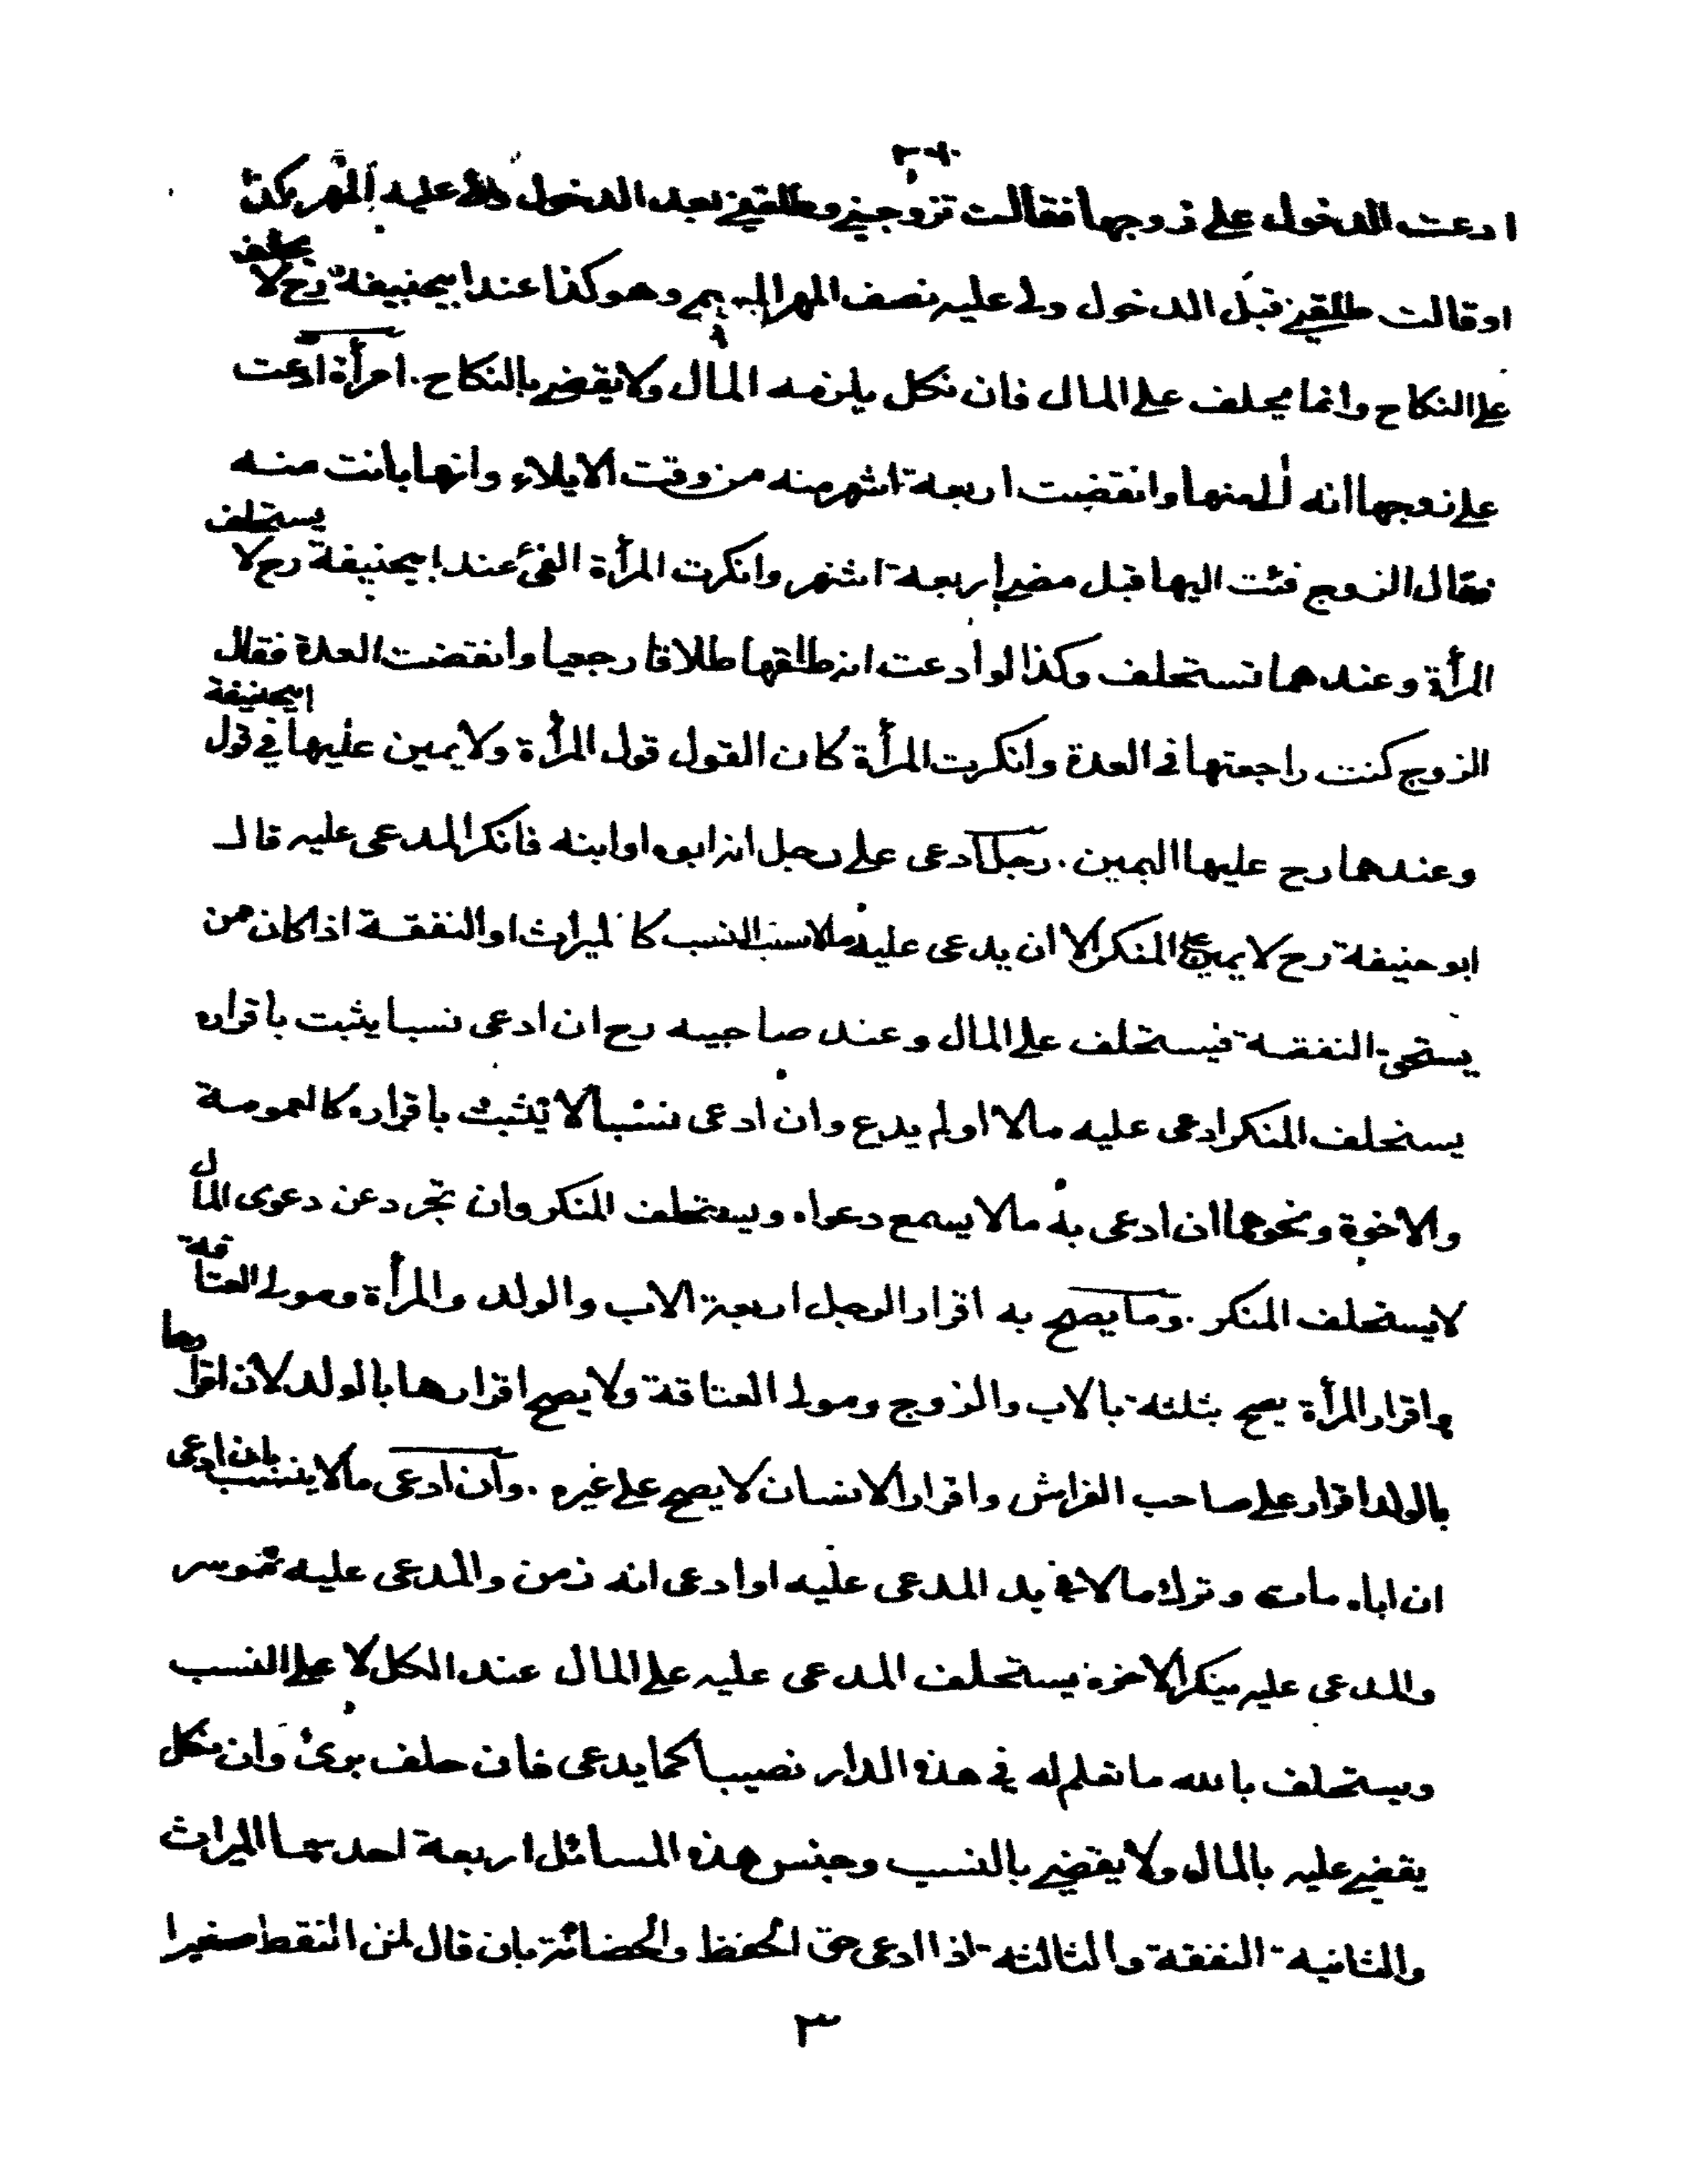 ادعت الدخول على زوجها فقالت تزوجني وطلقني بعد الدخول ولي عليه المهر بكذا
او قالت طلقني قبل الدخول ولي عليه نصف المهر وهو كذا عند ابيحنيفة رح لا يحلف
على النكاح وانما يحلف على المال فان نكل يلزمه المال ولا يقضى بالنكاح . امرأة ادعت
على زوجها انه آلى منها وانقضت اربعة اشهر منه من وقت الايلاء وانها بانت منه
فقال الزوج فئت اليها قبل مضى اربعة اشهر وانكرت المرأة الفئ عند ابيحنيفة رح لا يستحلف
المرأة وعندهما تستحلف وكذا لو ادعت انه طلقها طلاقا رجعيا وانقضت العدة فقال
الزوج كنت راجعتها في العدة وانكرت المرأة كان القول قول المرأة ولا يمين عليها في قول ابيحنيفة
وعندهما رح عليها اليمين . رجل ادعى على رجل انه ابوه او ابنه فانكر المدعى عليه قال
ابو حنيفة رح لا يمين على المنكر الا ان يدعى عليه مالا بسبب النسب كالميراث او النفقة اذا كان من
يستحق النفقة فيستحلف على المال وعند صاحبيه رح ان ادعى نسبا يثبت باقراره
يستحلف المنكر ادعى عليه مالا او لم يدع وان ادعى نسبا لا يثبت باقراره كالعمومة
والاخوة ونحوهما ان ادعى به مالا يسمع دعواه ويستحلف المنكر وان تجرد عن دعوى المال
لا يستحلف المنكر . وما يصح به اقرار الرجل اربعة الاب والولد والمرأة ومولى العتاقة
واقرار المرأة يصح بثلثة بالاب والزوج ومولى العتاقة ولا يصح اقرارها بالولد لان اقرارها
بالولد اقرار على صاحب الفراش واقرار الانسان لا يصح على غيره . وان ادعى مالا بنسب بان ادعى
ان اباه مات وترك مالا في يد المدعى عليه او ادعى انه زمن والمدعى عليه موسر
والمدعى عليه ينكر الاخوة يستحلف المدعى عليه على المال عند الكل لا على النسب
ويستحلف بالله ما تعلم له في هذه الدار نصيبا كما يدعى فان حلف برئ وان نكل
يقضى عليه بالمال ولا يقضى بالنسب وجنس هذه المسائل اربعة احدىها الميراث
والثانية النفقة والثالثة اذا ادعى حق الحفظ والحضانة بان قال لمن التقط صغيرا
٣